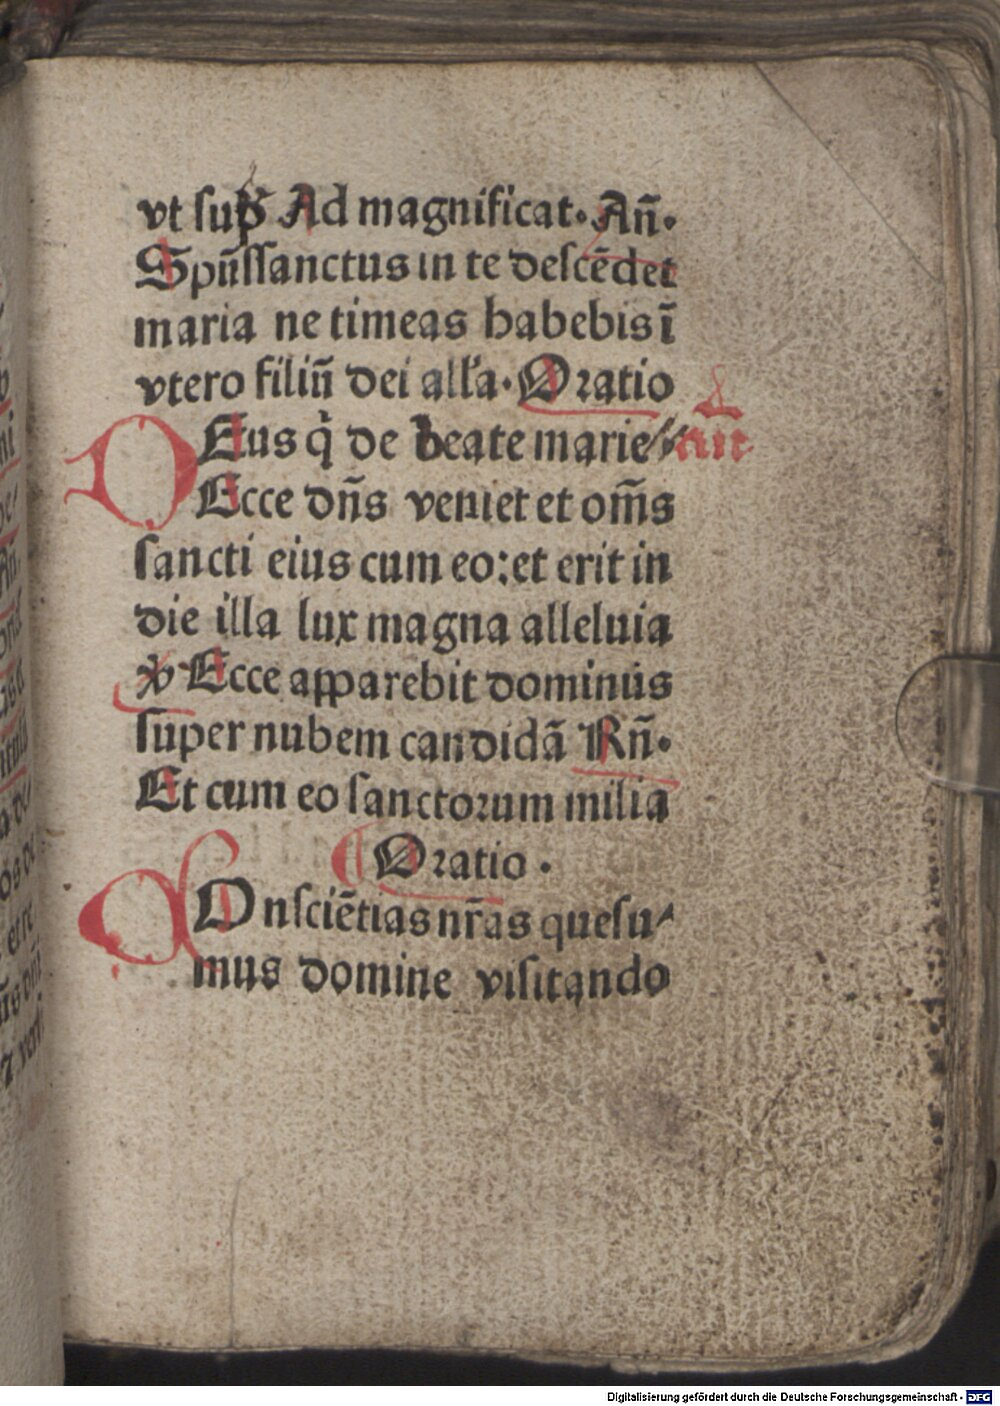 vt sup̄ Ad magnificat. Añ.
Spūssanctus in te descēdet
maria ne timeas habebis ī
vtero filiū dei all'a. Oratio
DEus q̇ de beate marie Añ.
Ecce dñs veniet et om̄s
sancti eius cum eo: et erit in
die illa lux magna alleluia
℣ Ecce apparebit dominus
super nubem candidā Rñ.
Et cum eo sanctorum milia
Oratio.
COnsciētias nr̄as quesu⸗
mus domine visitando
Digitalisierung gefördert durch die Deutsche Forschungsgemeinschaft - DFG